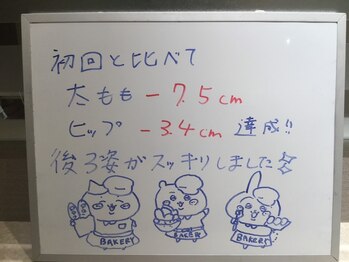 初回と比べて
太もも -7.5cm
ヒップ -3.4cm 達成!!
後ろ姿がスッキリしました☆
BAKERY BAKERY BAKERY